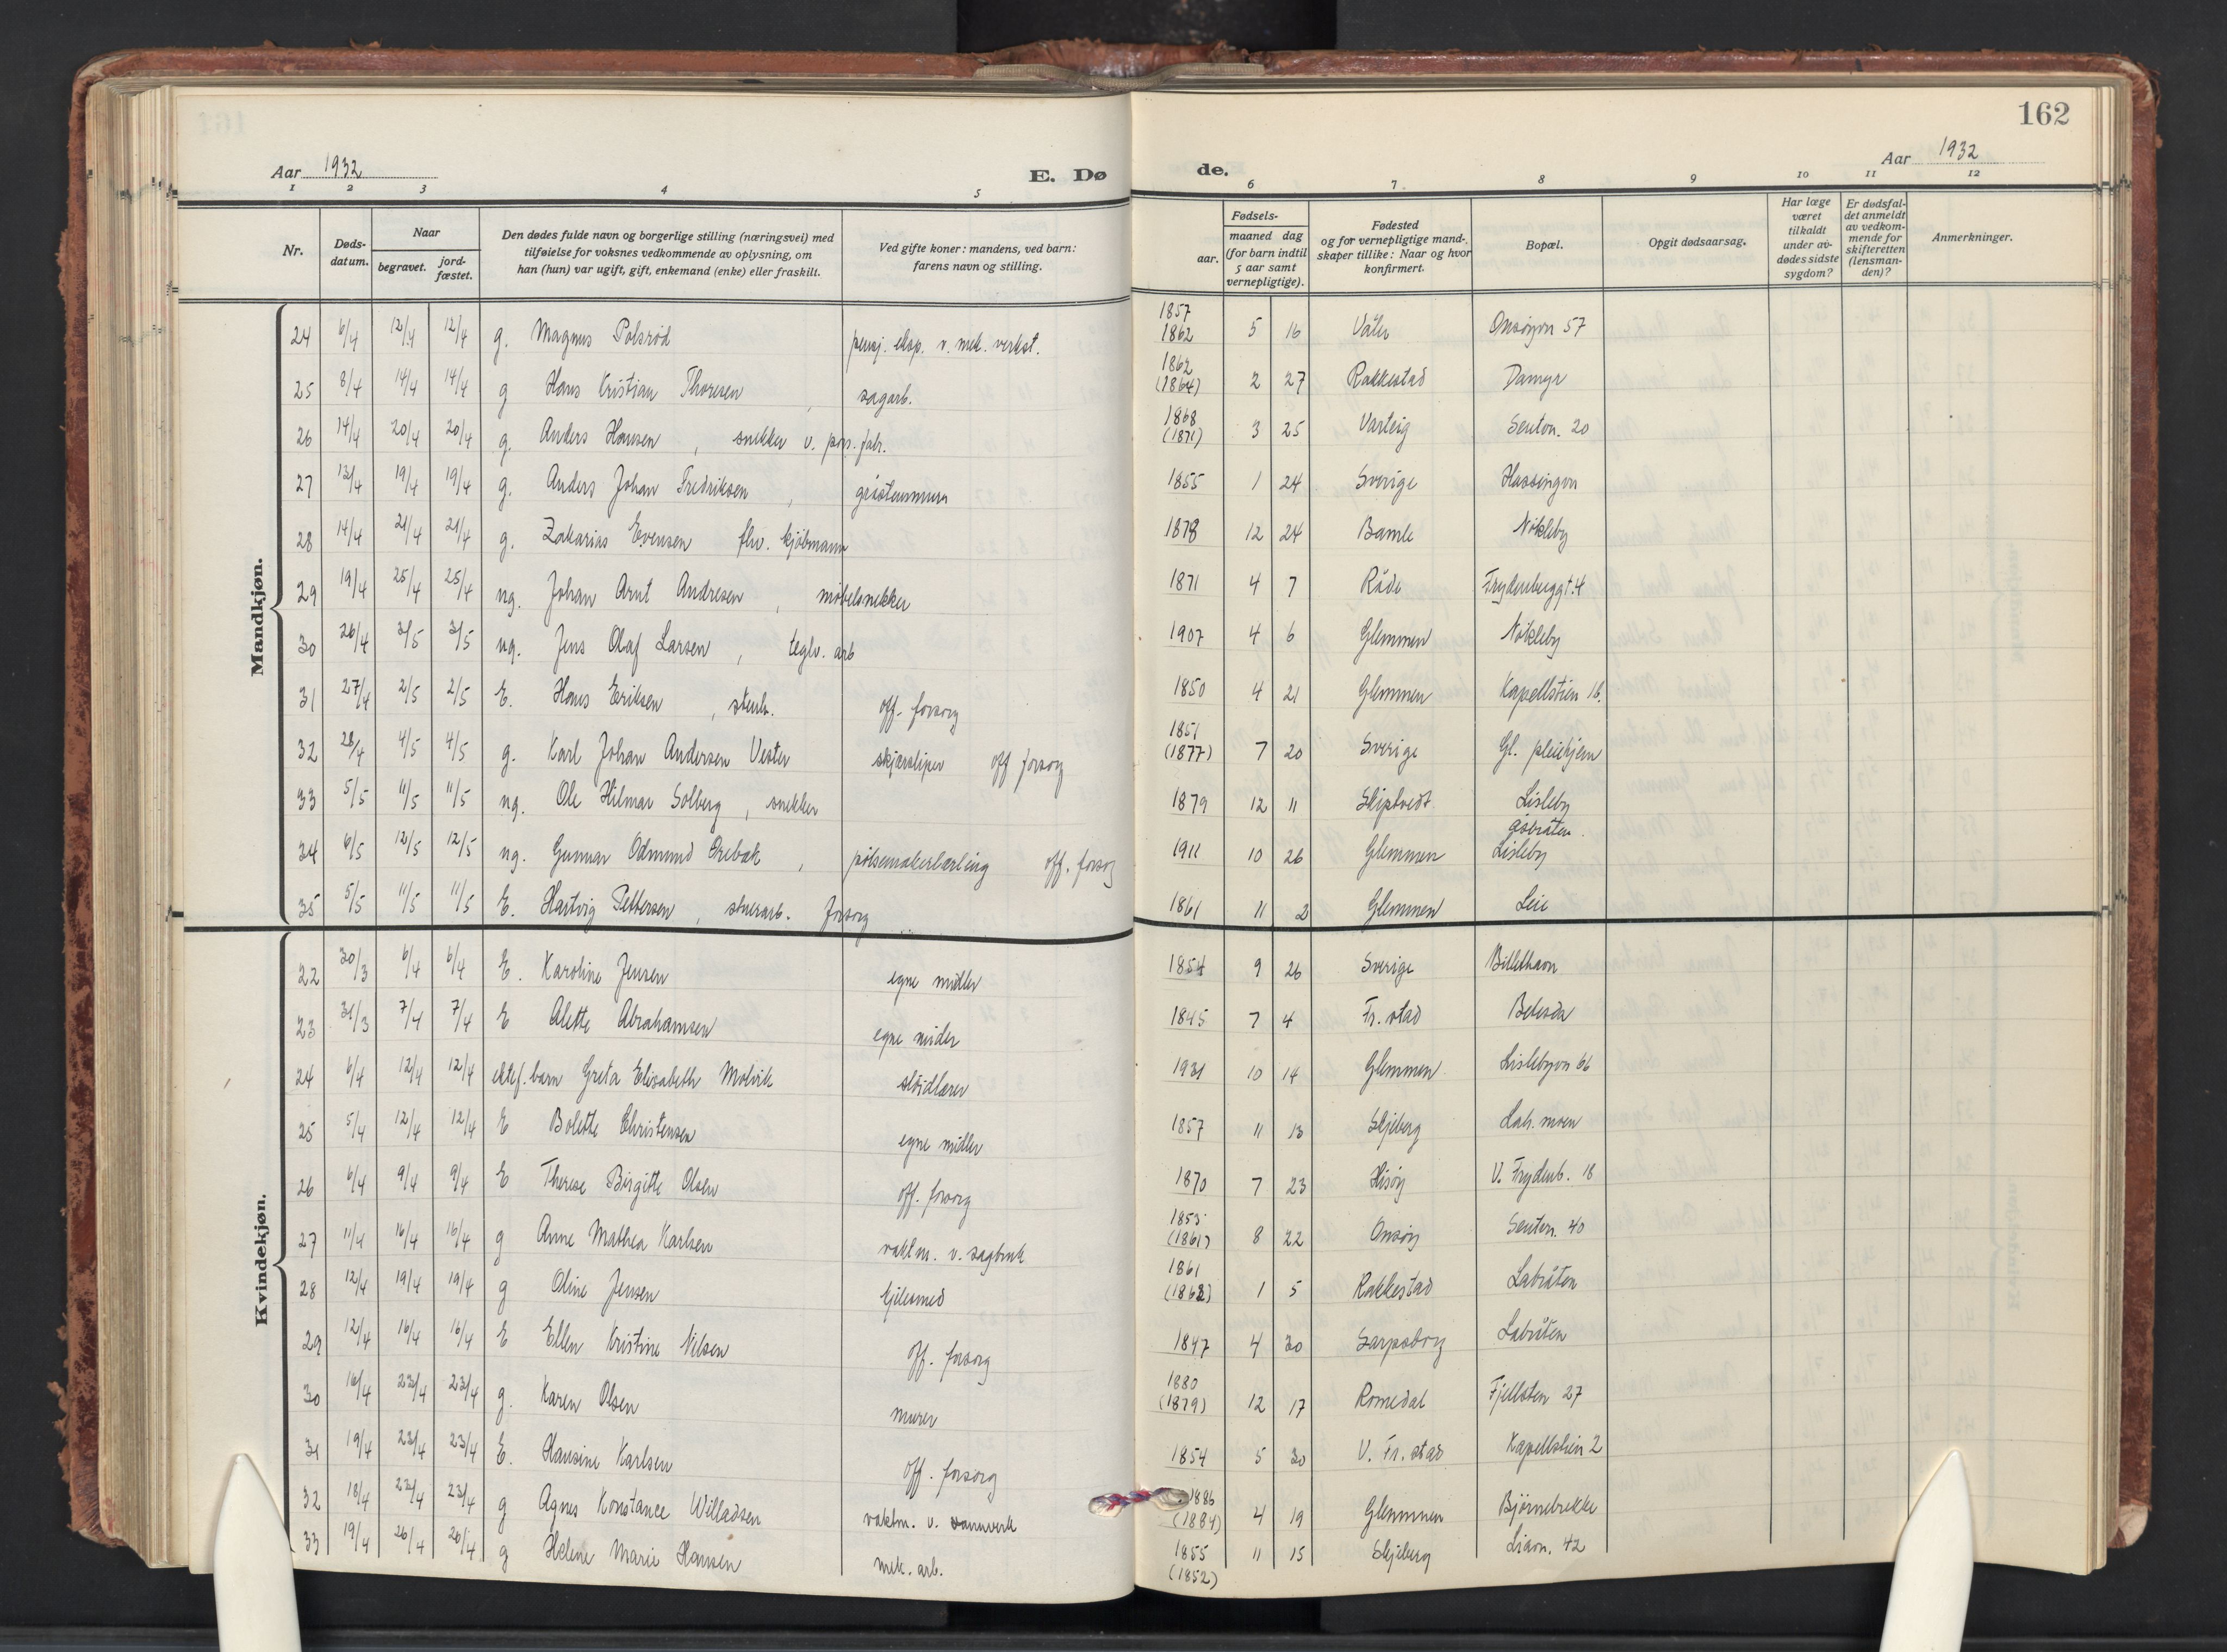 162
Aar 1932 E. Dø de. Aar 1932
1 2 3 4 5 6 7. 8 9 10 11 12
Nr. Døds-datum. Naar begravet. jord-fæstet. Den dødes fulde navn og borgerlige stilling (næringsvei) med tilføielse for voksnes vedkommende av oplysning, om han (hun) var ugift, gift, enkemand (enke) eller fraskilt. Ved gifte koner: mandens, ved barn: farens navn og stilling. Fødsels- aar. maaned dag (for barn indtil 5 aar samt vernepligtige). Fødested og for vernepligtige mand-skaper tillike: Naar og hvor konfirmert. Bopæl. Opgit dødsaarsag. Har læge været tilkaldt under av-dødes sidste sygdom? Er dødsfal-det anmeldt av vedkom-mende for skifteretten (lensman-den)? Anmerkninger.
Mandkjøn.
24 6/4 12/4 12/4 g. Magnus Polsrød pensj. eksp. v. mek. verkst. 1857 1862 5 16 Våler Onsøyvn 57
25 8/4 14/4 14/4 g Hans Kristian Thoresen , sagarb. 1862 (1864) 2 27 Rakkestad Damyr
26 14/4 20/4 20/4 g. Anders Hansen , snekker v. pors. fabr. 1868 (1871) 3 25 Varteig Seuton. 20
27 13/4 19/4 19/4 g. Anders Johan Fredriksen , gråstenmurer 1855 1 24 Sverige Hassingvn
28 14/4 21/4 21/4 g. Zakarias Evensen fhv. kjøbmann 1878 12 24 Bamle Nøkleby
29 19/4 25/4 25/4 ug. Johan Arnt Andresen , møbelsnekker 1871 4 7 Råde Frydenberggt. 4
30 26/4 3/5 3/5 ug. Jens Olaf Larsen , teglv. arb 1907 4 6 Glemmen Nøkleby
31 27/4 2/5 2/5 E. Hans Eriksen , stenh. off. forsorg 1850 4 21 Glemmen Kapellstien 16.
32 28/4 4/5 4/5 g. Karl Johan Andersen Vester skjærsliper off forsorg 1851 (1877) 7 20 Sverige Gl. pleiehjem
33 5/5 11/5 11/5 ug. Ole Hilmar Solberg , snekker 1879 12 11 Skiptvedt Lisleby
34 6/5 12/5 12/5 ug. Gunnar Odmund Orebak , pølsemakerlærling off. forsorg 1911 10 26 Glemmen Åsbråten. Lisleby
35 5/5 11/5 11/5 E. Hartvig Pettersen , stuerarb. forsorg 1861 11 2 Glemmen Leie
Kvindekjøn.
22 30/3 6/4 6/4 E. Karoline Jensen egne midler 1854 9 26 Sverige
23 31/3 7/4 7/4 E Alette Abrahamsen egne mider 1845 7 4 Fr. stad Betesda
24 6/4 12/4 12/4 ektef. barn Greta Elisabeth Molvik sløidlærer 1931 10 14 Glemmen Lislebyvn 66
25 5/4 12/4 12/4 E Bolette Christensen egne midler 1857 11 13 Skjeberg Lah. moen
26 6/4 9/4 9/4 E Therese Birgitte Olsen off. forsorg 1870 7 23 Hisøy V. Frydenb. 18
27 11/4 16/4 16/4 g Anne Mathea Karlsen vaktm. v. sagbruk 1853 (1861) 8 22 Onsøy Seuten. 40
28 12/4 19/4 19/4 g Oline Jensen kjelesmed 1861 (1862) 1 5 Rakkestad Labråten
29 12/4 16/4 16/4 E Ellen Kristine Nilsen off. forsorg 1847 4 30 Sarpsborg Labråten
30 16/4 23/4 23/4 g. Karen Olsen murer 1880 (1879) 12 17 Romedal Fjellsten 27
31 19/4 23/4 23/4 E. Hansine Karlsen off. forsorg 1854 5 30 V. Fr. stad Kapellstien 2
32 18/4 23/4 23/4 g Agnes Konstance Willadsen vaktm. v. vannverk 1886 (1884) 4 19 Glemmen Bjørnebrekke
33 19/4 26/4 26/4 g Helene Marie Hansen mek. arb. 1855 (1852) 11 15 Skjeberg Liavn. 42